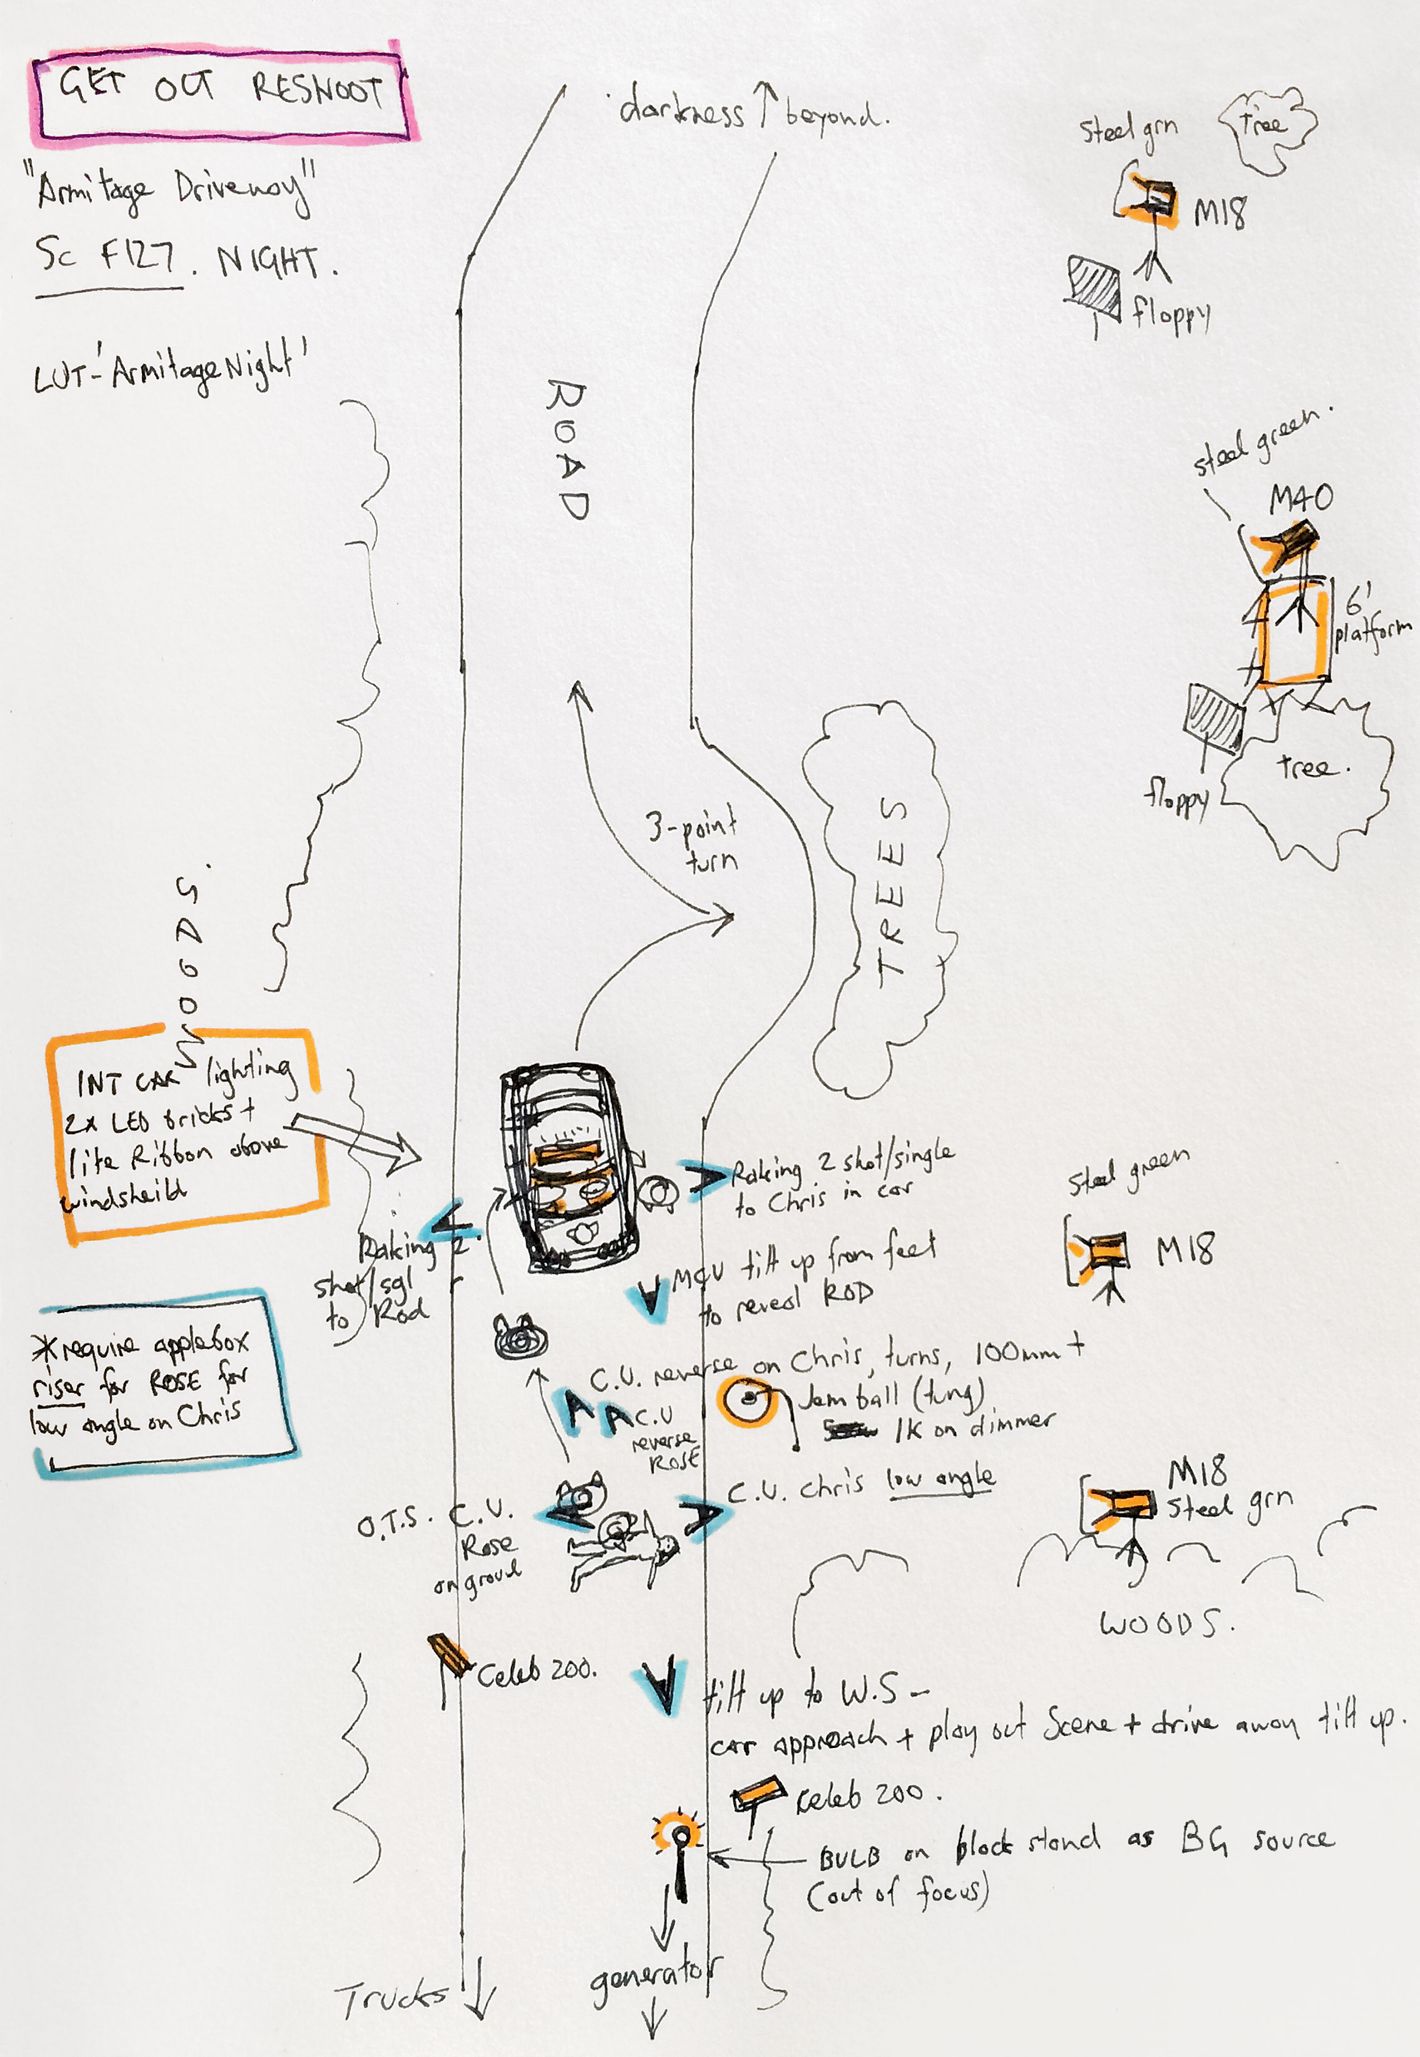 GET OUT RESHOOT
"Armitage Driveway"
Sc F127. NIGHT.
LUT-'ArmitageNight'
darkness beyond.
Steel grn
tree
M18
floppy
ROAD
steel green.
M40
6'
platform
floppy
tree.
3-point
turn
TREES
WOODS.
INT CAR lighting
2x LED bricks +
lite Ribbon above
windsheild
Raking 2
shot/sgl
to Rod
Raking 2 shot/single
to Chris in car
Steel green
M18
MCU tilt up from feet
to reveal ROD
*require applebox
riser for ROSE for
low angle on Chris
C.U. reverse on Chris, turns, 100mm +
C.U
reverse
ROSE
Jem ball (tung)
1K on dimmer
O.T.S. C.U.
Rose
on ground
C.U. Chris low angle
M18
Steel grn
WOODS.
Celeb 200.
tilt up to W.S -
car approach + play out Scene + drive away tilt up.
Celeb 200.
BULB on black stand as BG source
(out of focus)
generator
Trucks